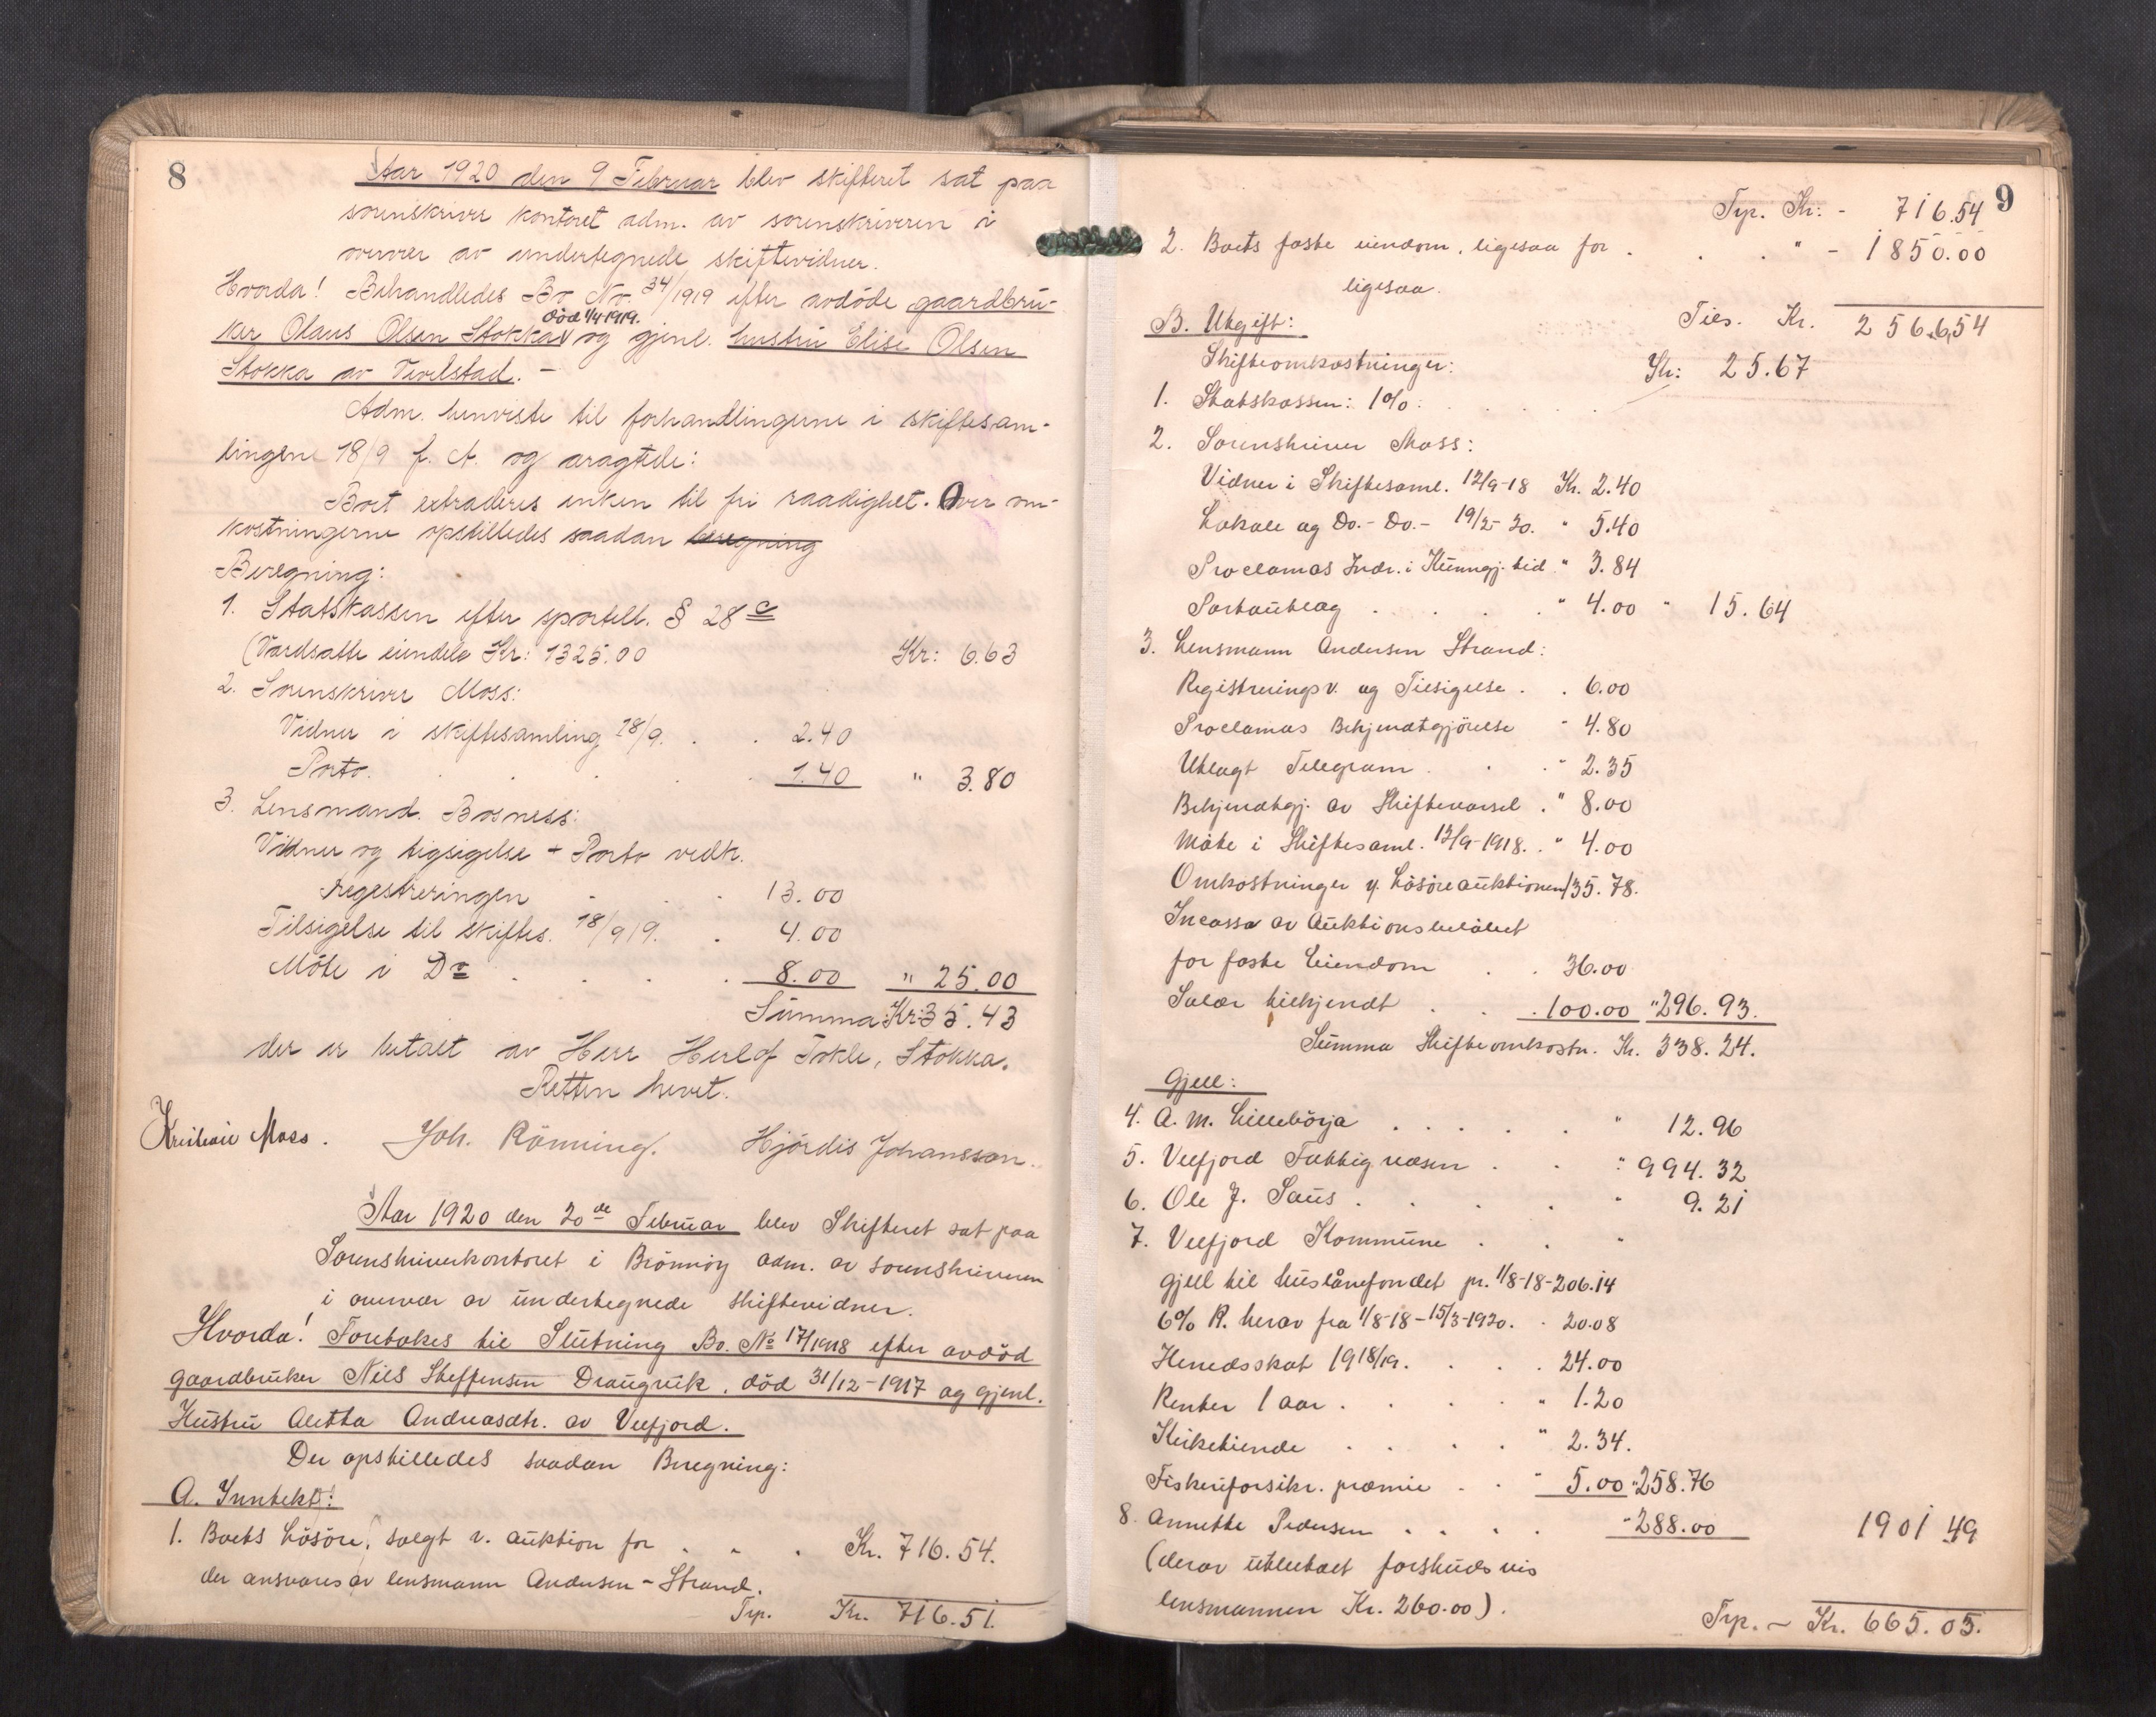 8
Aar 1920 den 9 Februar blev skifteret sat paa
sorenskriver kontoret adm. av sorenskriveren i
overvær av undertegnede skiftevidner.
Hvorda! Behandledes Bo No. 34/1919 efter avdöde gaardbru-
död 1/4 1919.
ker Olaus Olsen Stokka og gjenl. hustru Elise Olsen
Stokka av Tevelstad. -
Adm. henviste til forhandlingerne i skiftesam-
lingen 18/9 f. A. og aragtede:
Boet extraderes enken til fri raadighet. Over om-
kostningerne opstilledes saadan beregning
Beregning:
1. Statskassen efter sportell. § 28 c
(Værdsatte eiendele Kr: 1325.00 Kr: 6.63
2. Sorenskriver Moss:
Vidner i skiftesamling 18/9. . . 2.40
Porto. . . . . 1.40 " 3.80
3. Lensmand. Bosness:
Vidner og tegsigelse + Porto vedk.
regestreringen . . . 13.00
Tilsigelse til skiftes. 18/919. . 4.00
Möte i Do . . . . 8.00 " 25.00
Summa Kr: 35.43
der er betalt av Herr Herlof Tokle, Stokka.
Retten hevet.
Kristian Moss. Joh. Rönning. Hjördis Johansson.
Aar 1920 den 20de Februar blev Skifteret sat paa
Sorenskriverkontoret i Brönnöy adm. av sorenskriveren
i overvær av undertegnede skiftevidner.
Hvorda! Foretokes til Slutning Bo. No 17/1918 efter avdöd
gaardbruker Nils Steffensen Draugvik, död 31/12-1917 og gjenl.
Hustru Aletta Andreasdtr. av Velfjord.
Der opstilledes saadan Beregning:
A. Inntekt:
1. Boets Lösöre, solgt v. auktion for . . . Kr. 716.54.
der ansvares av lensmann Andersen-Strand.
Trp. Kr. 716.51.
9
Trp. Kr: - 716.54
2. Boets faste eiendom, ligesaa for . . . " - 1850.00
ligesaa.
B. Utgift: Tils. Kr. 2566,54
Skifteomkostninger: Kr: 25.67
1. Statskassen: 1%: . . . . .
2. Sorenskriver Moss:
Vidner i Skiftesaml. 12/9-18 Kr. 2.40
Lokale og Do.- Do.- 19/2-20. " 5.40
Proclamas Indr. i Kunngj. tid. " 3.84
Portoutlag . . . . " 4.00 " 15.64
3. Lensmann Andersen Strand:
Registreringsv. og Tilsigelse . . 6.00
Proclamas Bekjendtgjörelse " 4.80
Utlagt Telegram . . . " 2.35
Bekjendtgj. av Skiftevarsel . " 8.00
Möte i Skiftesaml. 12/9-1918. . " 4.00
Omkostninger v. Lösöreauktionen 135.78.
Incasso av Auktionsbelöbet
for faste Eiendom . . 36.00
Salær tilkjendt . . . 100.00 " 296.93.
Summa Skifteomkostn. Kr. 338.24.
Gjell:
4. A. M. Lillebörja . . . . . " 12.96
5. Velfjord Fattigvæsen . . " 994.32
6. Ole J. Saus . . . . . " 9.21
7. Velfjord Kommune . . "
gjell til huslånefondet pr. 1/8-18-206.14
6% R. herav fra 1/8-18-15/3-1920. . 20.08
Herredsskat 1918/19. . . . 24.00
Renter 1 aar . . . . " 1.20
Kirketiende . . . . " 2.34.
Fiskeriforsikr. præmie . . " 5.00 " 258.76
8. Annette Pedersen . . . . " 288.00 1901 49
(derav utbetalt forskudsvis
lensmannen Kr. 260.00).
Trp. - Kr. 665.05.